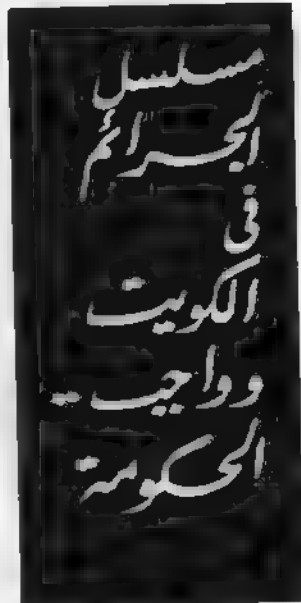 مسلسل
الجرائم
فى
الكويت
وواجب
الحكومة